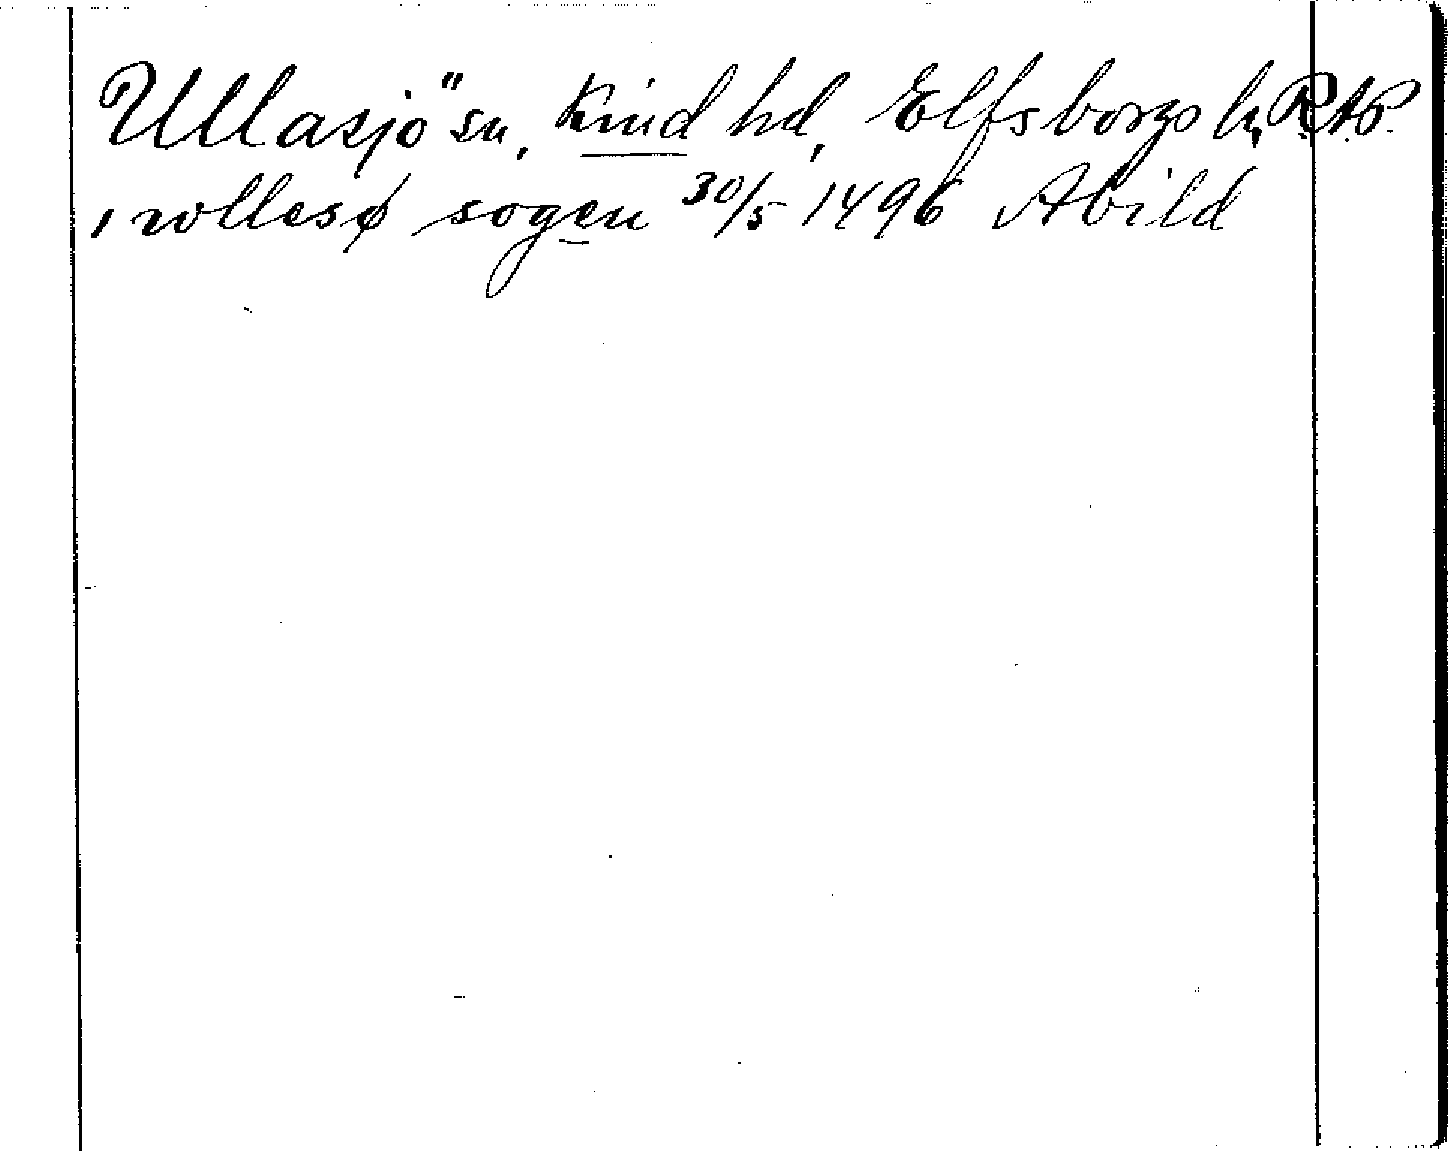 Ullasjö sn, Kind hd, Elfsborgs l, RAP.
i wllesø sogen 30/5 1496 Abild